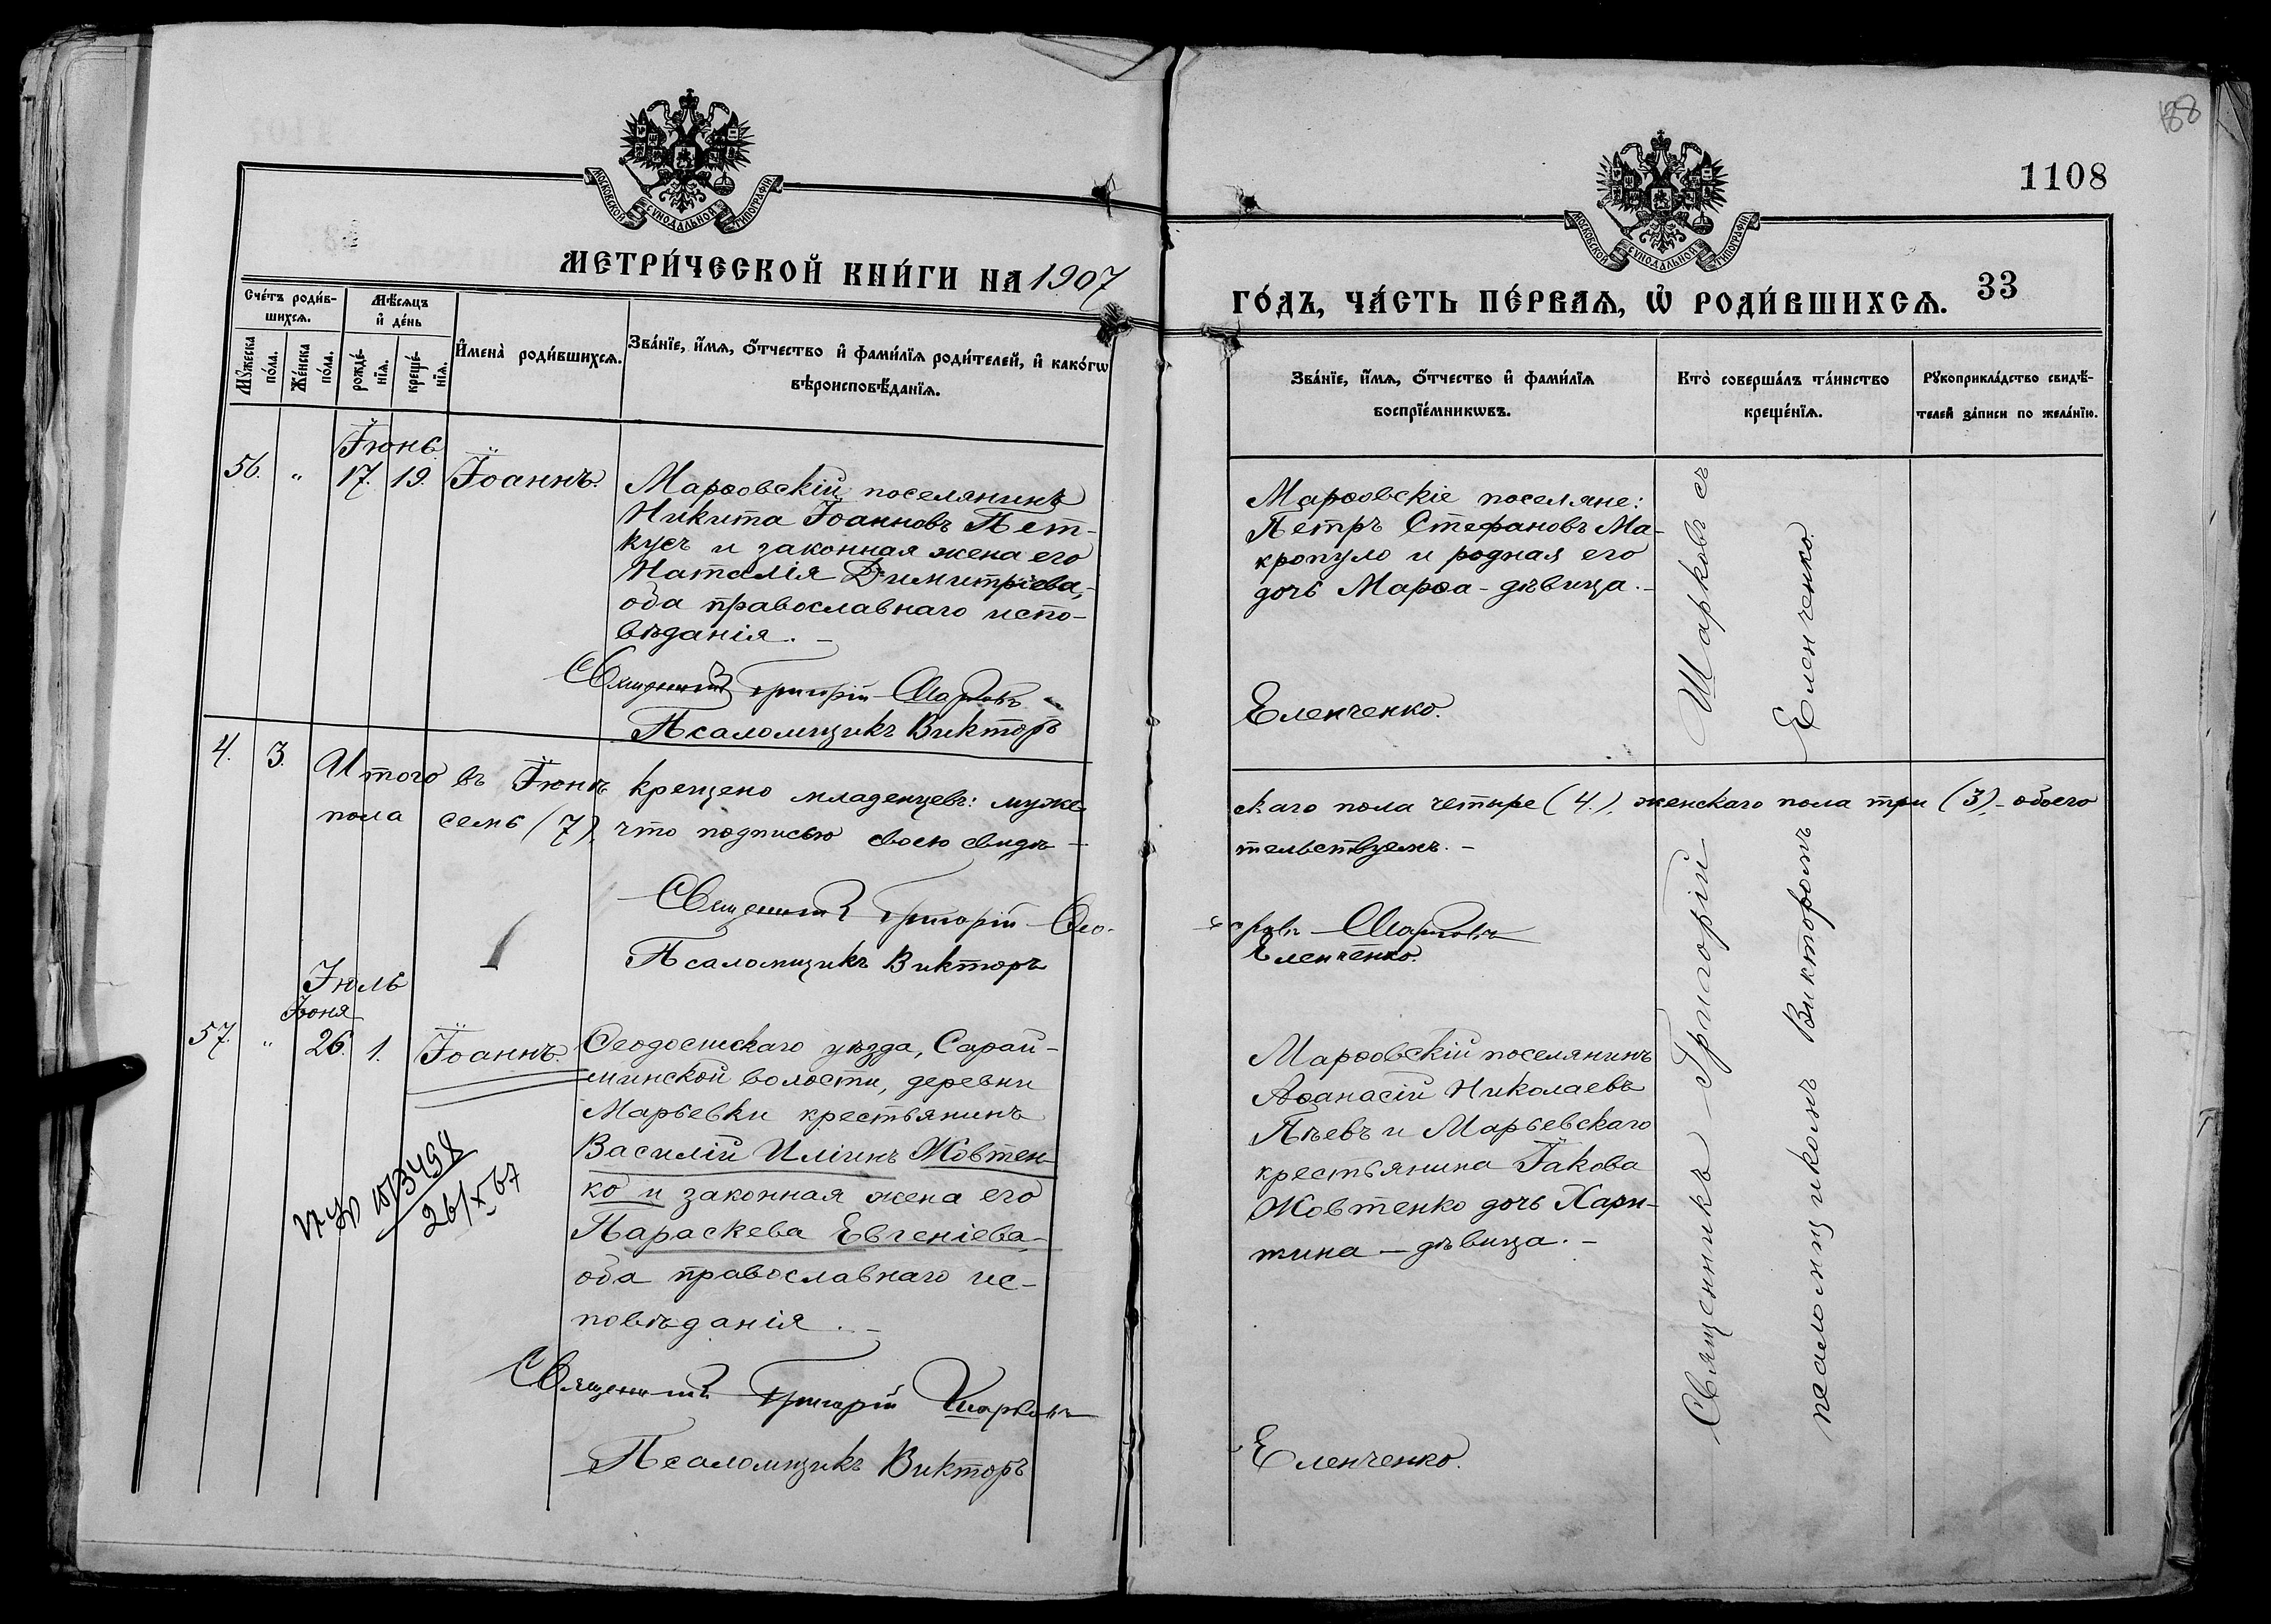 МОСКОВСКОЙ СѴНОДАЛЬНОЙ ТИПОГРАФІИ
МЕТРИ́ЧЕСКОЙ КНИ́ГИ НА 1907
Сче́тъ роди́в-
шихсѧ.
Мꙋ́жеска
по́ла.
Же́нска
по́ла.
Мѣ́сѧцъ
и҆ де́нь
рожде́-
нїѧ.
креще́-
нїѧ.
И҆мена̀ роди́вшихсѧ.
Зва́нїе, и҆́мѧ, ѻ҆́тчество и҆ фами́лїѧ роди́телей, и҆ како́гѡ
вѣроисповѣ́данїѧ.
Іюнь
56. „ 17. 19. Іоаннъ.
Марѳовскій поселянинъ
Никита Іоанновъ Пет-
кусъ и законная жена его
Наталія Димитріева,-
оба православнаго испо-
вѣданія. –
Священникъ Григорій Шарковъ
Псаломщикъ Викторъ
4. 3. Итого въ Іюнѣ крещено младенцевъ: муже-
пола семь (7), что подписью своею свидѣ –
Священникъ Григорій Ѳео-
Псаломщикъ Викторъ
Іюль
Іюня
57. „ 26. 1. Іоаннъ.
Ѳеодосійскаго уѣзда, Сарай-
минской волости, деревни
Марьевки крестьянинъ
Василій Иліинъ Жовтен-
ко и законная жена его
Параскева Евгеніева,-
оба православнаго ис-
повѣданія. –
26/X 67
Священникъ Григорій Шарковъ
Псаломщикъ Викторъ
188
1108
МОСКОВСКОЙ СѴНОДАЛЬНОЙ ТИПОГРАФІИ
ГО́ДЪ, ЧА́СТЬ ПЕ́РВАѦ, Ѡ҆ РОДИ́ВШИХСѦ. 33
Зва́нїе, и҆́мѧ, ѻ҆́тчество и҆ фами́лїѧ
воспрїе́мникѡвъ.
Кто̀ соверша́лъ та́инство
креще́нїѧ.
Рꙋкоприкла́дство свидѣ́-
телей за́писи по жела́нїю.
Марѳовскіе поселяне:
Петръ Стефановъ Ма-
кропуло и родная его
дочь Марѳа - дѣвица. –
Еленченко.
скаго пола четыре (4.), женскаго пола три (3), - обоего
тельствуемъ. –
Шарковъ
Еленченко.
Марѳовскій поселянинъ
Аѳанасій Николаевъ
Пѣевъ и Марьевскаго
крестьянина Іакова
Жовтенко дочь Хари-
тина – дѣвица. –
Еленченко.
Священникъ Григорій Шарковъ съ
псаломщикомъ Викторомъ Еленченко.